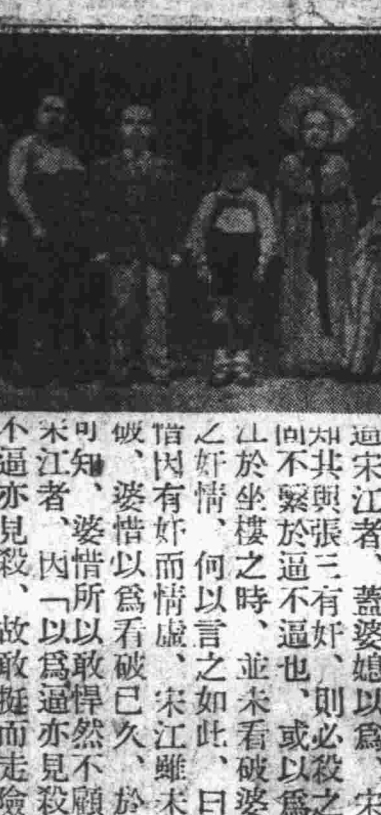 逼宋江者、蓋婆媳以爲、宋
知其與張三有奸、則必殺之
固不繫於逼不逼也、或以爲
江於坐樓之時、並未看破婆
之奸情、何以言之如此、曰
惜因有奸而情虛、宋江雖未
破、婆惜以爲看破已久、於
可知、婆惜所以敢悍然不顧
宋江者、因「以爲逼亦見殺
不逼亦見殺、故敢挺而走險